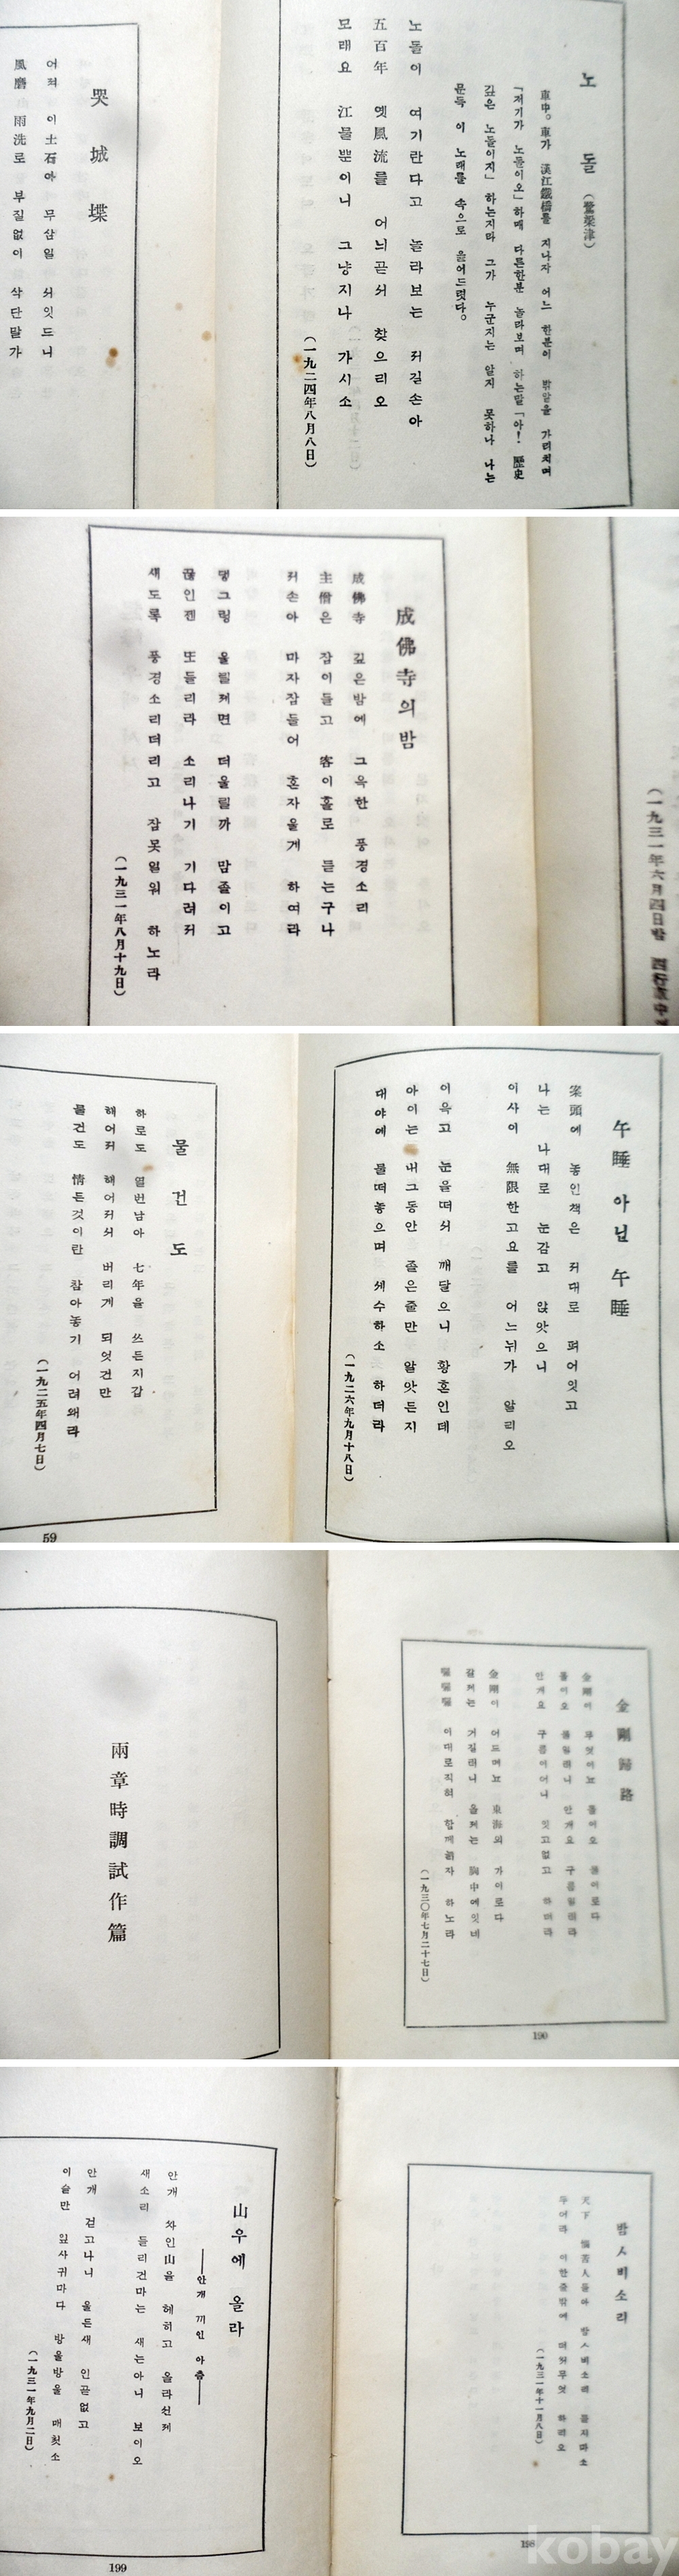 노돌 (鷺梁津)
車中。車가 漢江鐵橋를 지나자 어느 한분이 밖알을 가리치며
「저기가 노돌이오」하매 다른한분 놀라보며 하는말「아! 歷史
깊은 노돌이지」하는지라 그가 누군지는 알지 못하나 나는
문득 이 노래를 속으로 읊어드렷다。
노돌이 여기란다고 놀라보는 저길손아
五百年 옛風流를 어늬곧서 찾으리오
모래요 江물뿐이니 그냥지나 가시소
(一九二四年八月八日)
哭城堞
어저 이土石아 무삼일 서잇드니
風磨 雨洗로 부질없이 삭단말가
(一九三一年六月四日밤
成佛寺의밤
成佛寺 깊은밤에 그윽한 풍경소리
主僧은 잠이들고 客이홀로 듣는구나
저손아 마자잠들어 혼자울게 하여라
댕그렁 울릴제면 더울릴까 맘졸이고
끊인젠 또들리라 소리나기 기다려저
새도록 풍경소리더리고 잠못일워 하노라
(一九三一年八月十九日)
午睡아닌午睡
案頭에 놓인책은 저대로 펴어잇고
나는 나대로 눈감고 앉앗으니
이사이 無限한고요를 어느뉘가 알리오
이윽고 눈을떠서 깨달으니 황혼인데
아이는 내그동안 졸은줄만 알앗든지
대야에 물떠놓으며 세수하소 하더라
(一九二六年九月十八日)
물건도
하로도 열번남아 七年을 쓰든지갑
해어저 해어저서 버리게 되엇건만
물건도 情든것이란 참아놓기 어려왜라
(一九二五年四月七日)
59
金剛歸路
金剛이 무엇이뇨 돌이오 물이로다
돌이오 물일러니 안개요 구름일러라
안개요 구름이어니 잇고없고 하더라
金剛이 어드메뇨 東海의 가이로다
갈제는 거길러니 올제는 胸中에잇네
이대로직혀 함께늙자 하노라
(一九三〇年七月二十七日)
190
兩章時調試作篇
밤ㅅ비소리
天下 惱苦人들아 밤ㅅ비소리 듣지마소
두어라 이한줄밖에 더쓸무엇 하리오
(一九三一年十一月八日)
198
山우에 올라
——안개 끼인 아츰——
안개 싸인山을 헤히고 올라선제
새소리 들리건마는 새는아니 보이오
안개 걷고나니 울든새 인곧없고
이슬만 잎사귀마다 방울방울 매첫소
(一九三一年九月二日)
199
kobay